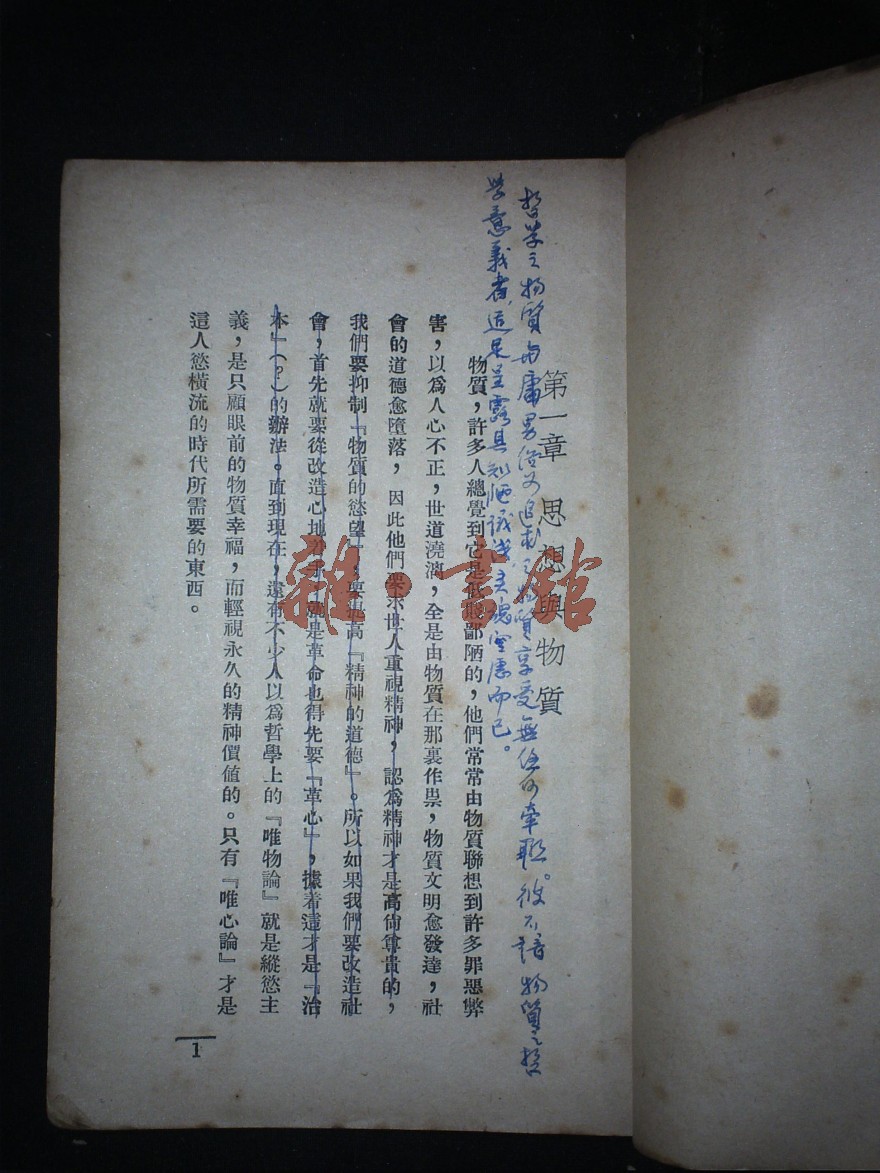 第一章 思想與物質
哲学之物質与庸男俗女追求之物質享受無任何牵联。彼不諳物質之哲
学意義者,适足呈露其知陋識浅灵魂空虚而已。
物質,許多人總覺到它是低賤鄙陋的,他們常常由物質聯想到許多罪惡弊
害,以爲人心不正,世道澆漓,全是由物質在那裏作祟,物質文明愈發達,社
會的道德愈墮落,因此他們要求世人重視精神,認爲精神才是高尙尊貴的,
我們要抑制『物質的慾望』,要提高『精神的道德』。所以如果我們要改造社
會,首先就要從改造心地着手,就是革命也得先要『革心』,據着這才是『治
本』(?)的辦法。直到現在,還有不少人以爲哲學上的『唯物論』就是縱慾主
義,是只顧眼前的物質幸福,而輕視永久的精神價値的。只有『唯心論』才是
這人慾橫流的時代所需要的東西。
1
雜·書館